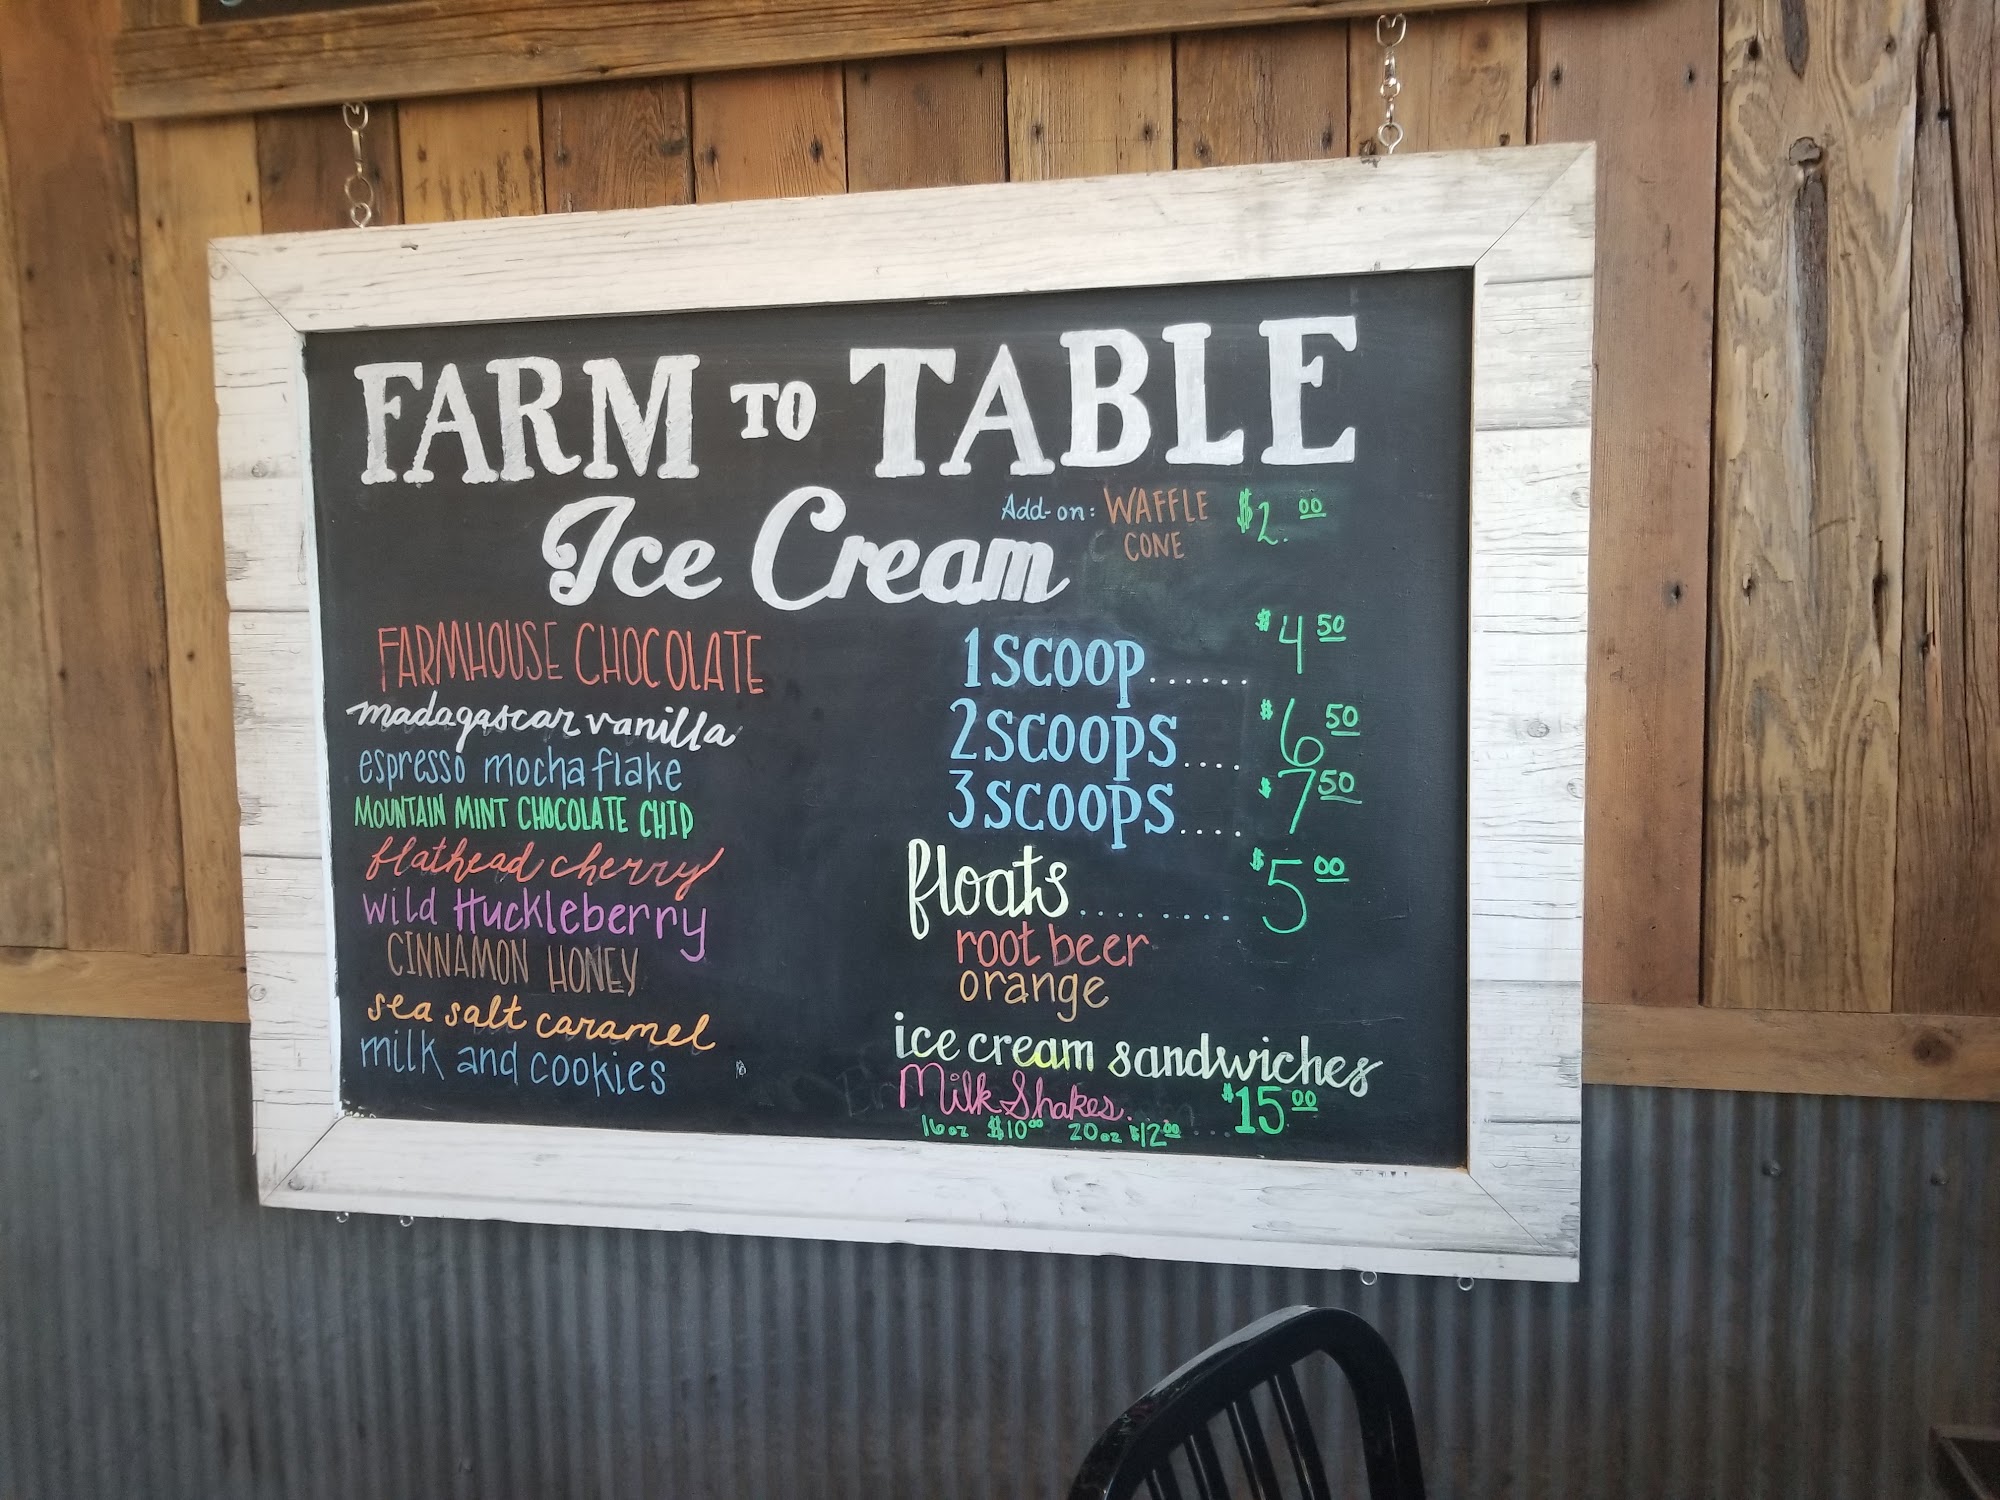 FARM TO TABLE
Ice Cream
Add-on: WAFFLE CONE $2.00
FARMHOUSE CHOCOLATE
madagascar vanilla
espresso mocha flake
MOUNTAIN MINT CHOCOLATE CHIP
flathead cherry
wild Huckleberry
CINNAMON HONEY
sea salt caramel
milk and cookies
1 SCOOP...... $4 50
2 SCOOPS.... $6 50
3 SCOOPS.... $7 50
floats......... $5 00
root beer
orange
ice cream sandwiches
$15 00
Milk Shakes
16oz $10 00 20oz $12 00